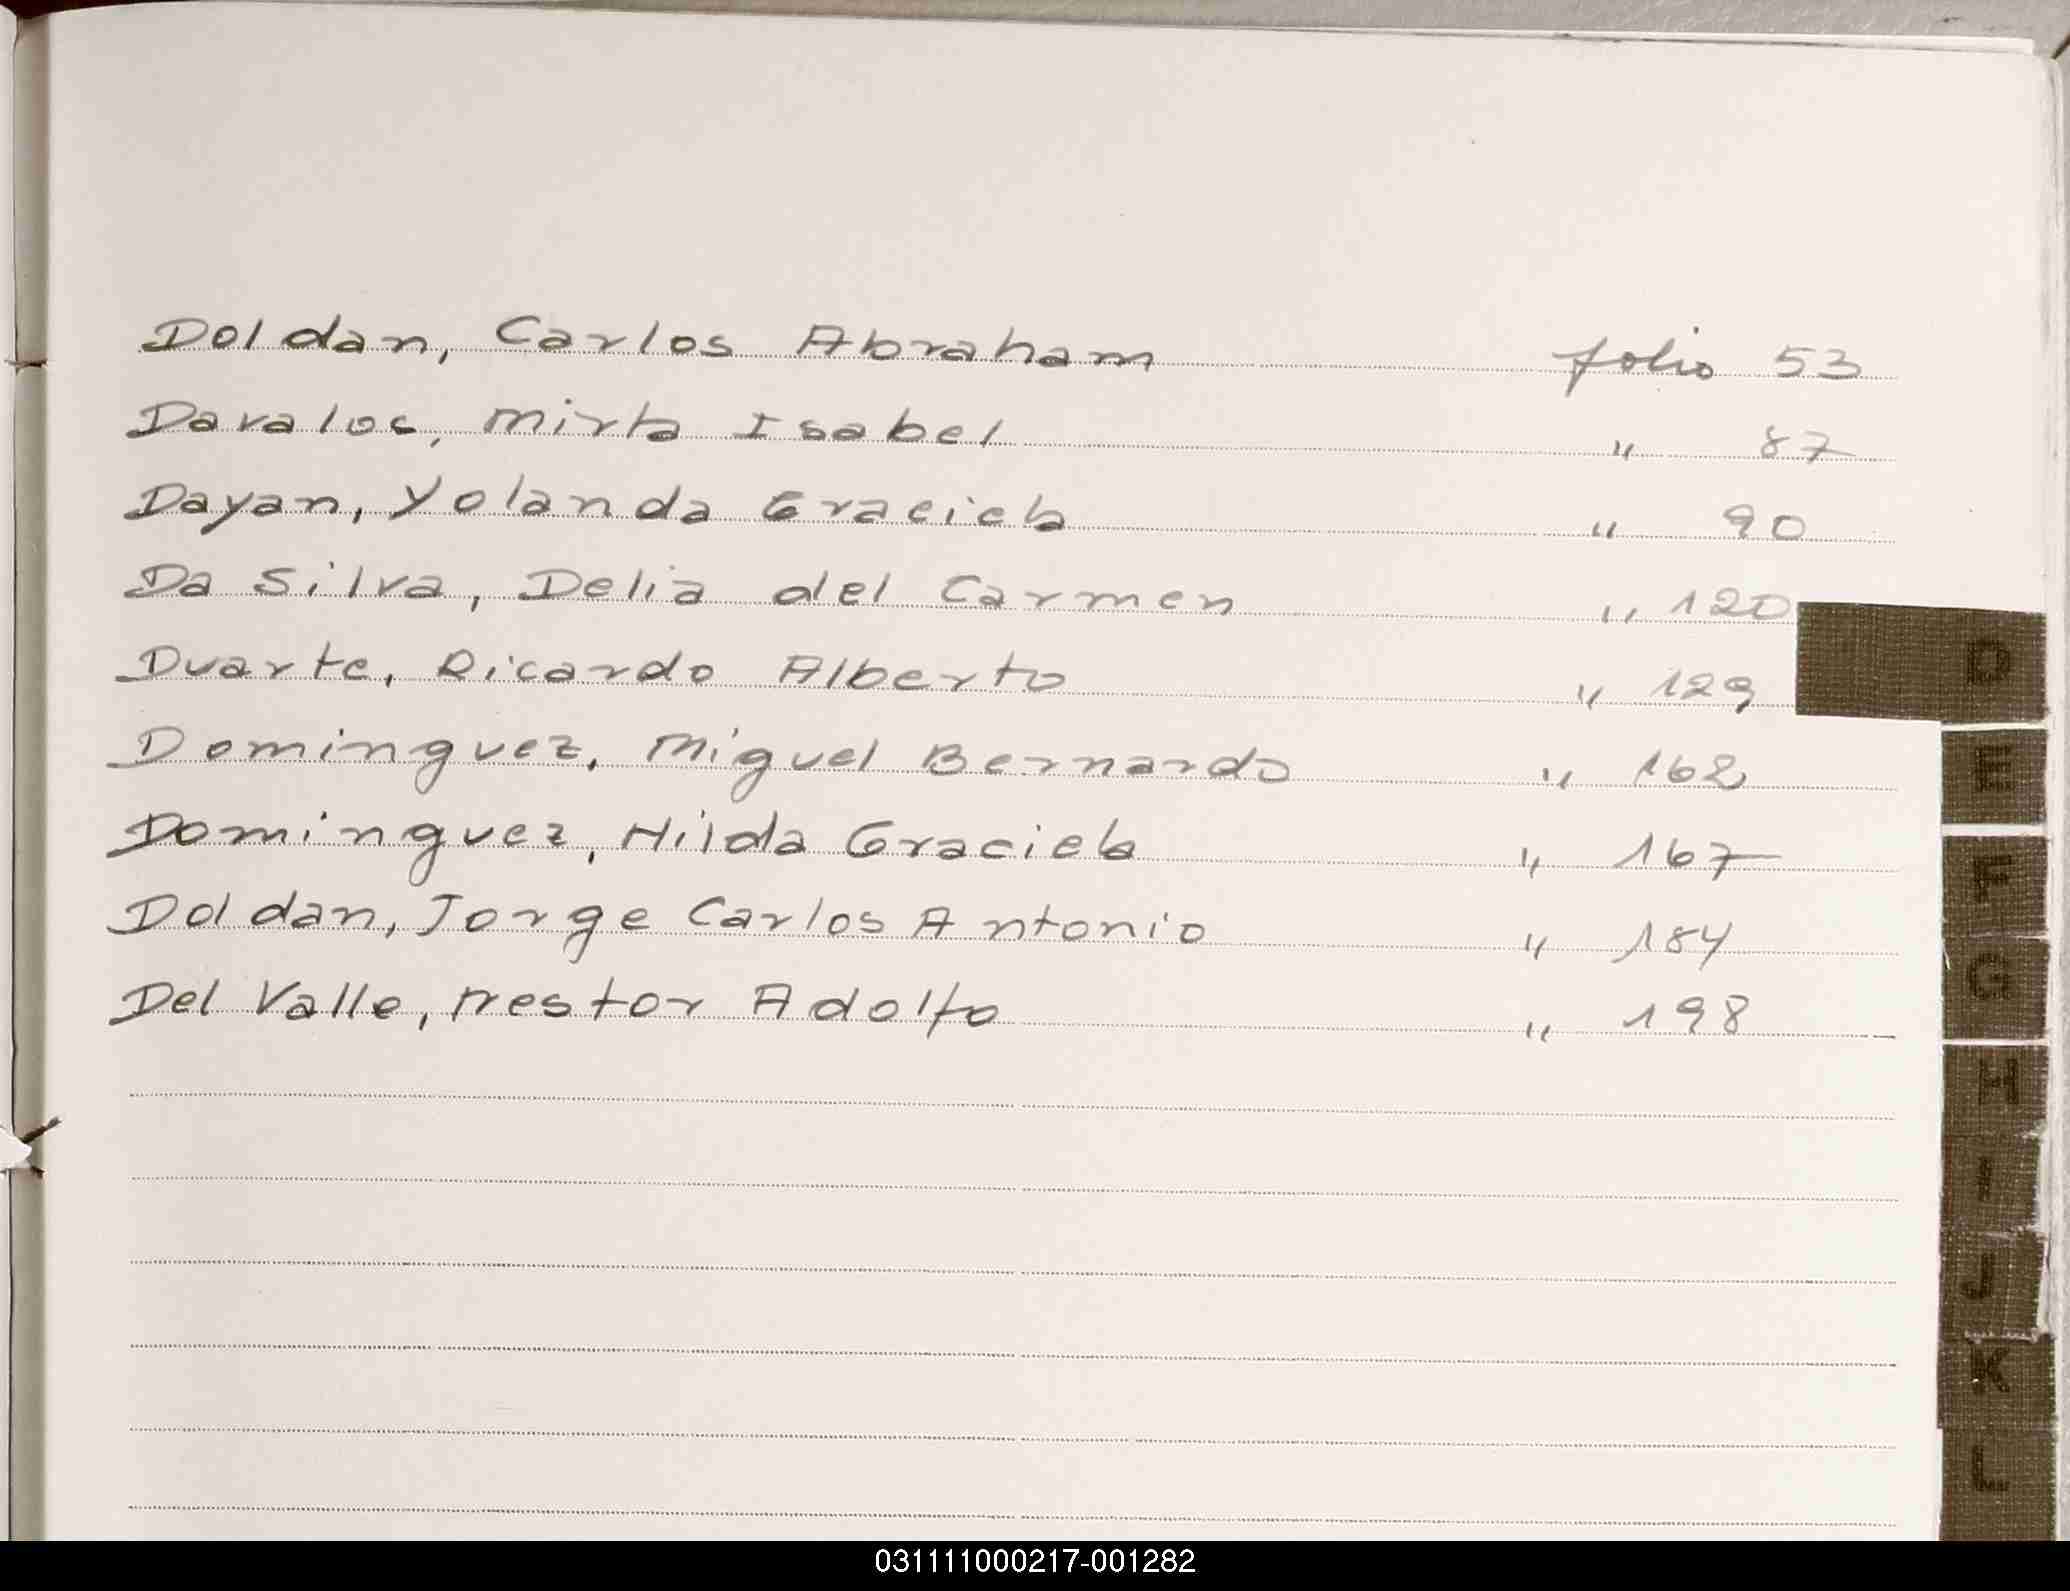 Doldan, Carlos Abraham folio 53
Davalos, Mirta Isabel " 87
Dayan, Yolanda Graciela " 90
Da Silva, Delia del Carmen " 120
Duarte, Ricardo Alberto " 129
Dominguez, Miguel Bernardo " 162
Dominguez, Hilda Graciela " 167
Doldan, Jorge Carlos Antonio " 184
Del Valle, Nestor Adolfo " 198
D
E
F
G
H
I
J
K
L
031111000217-001282